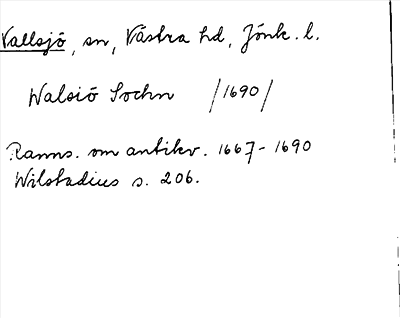 Vallsjö, sn, Västra hd, Jönk. l.
Walsiö Sochn /1690/
Ranns. om antikv. 1667-1690
Wilstadius s. 206.